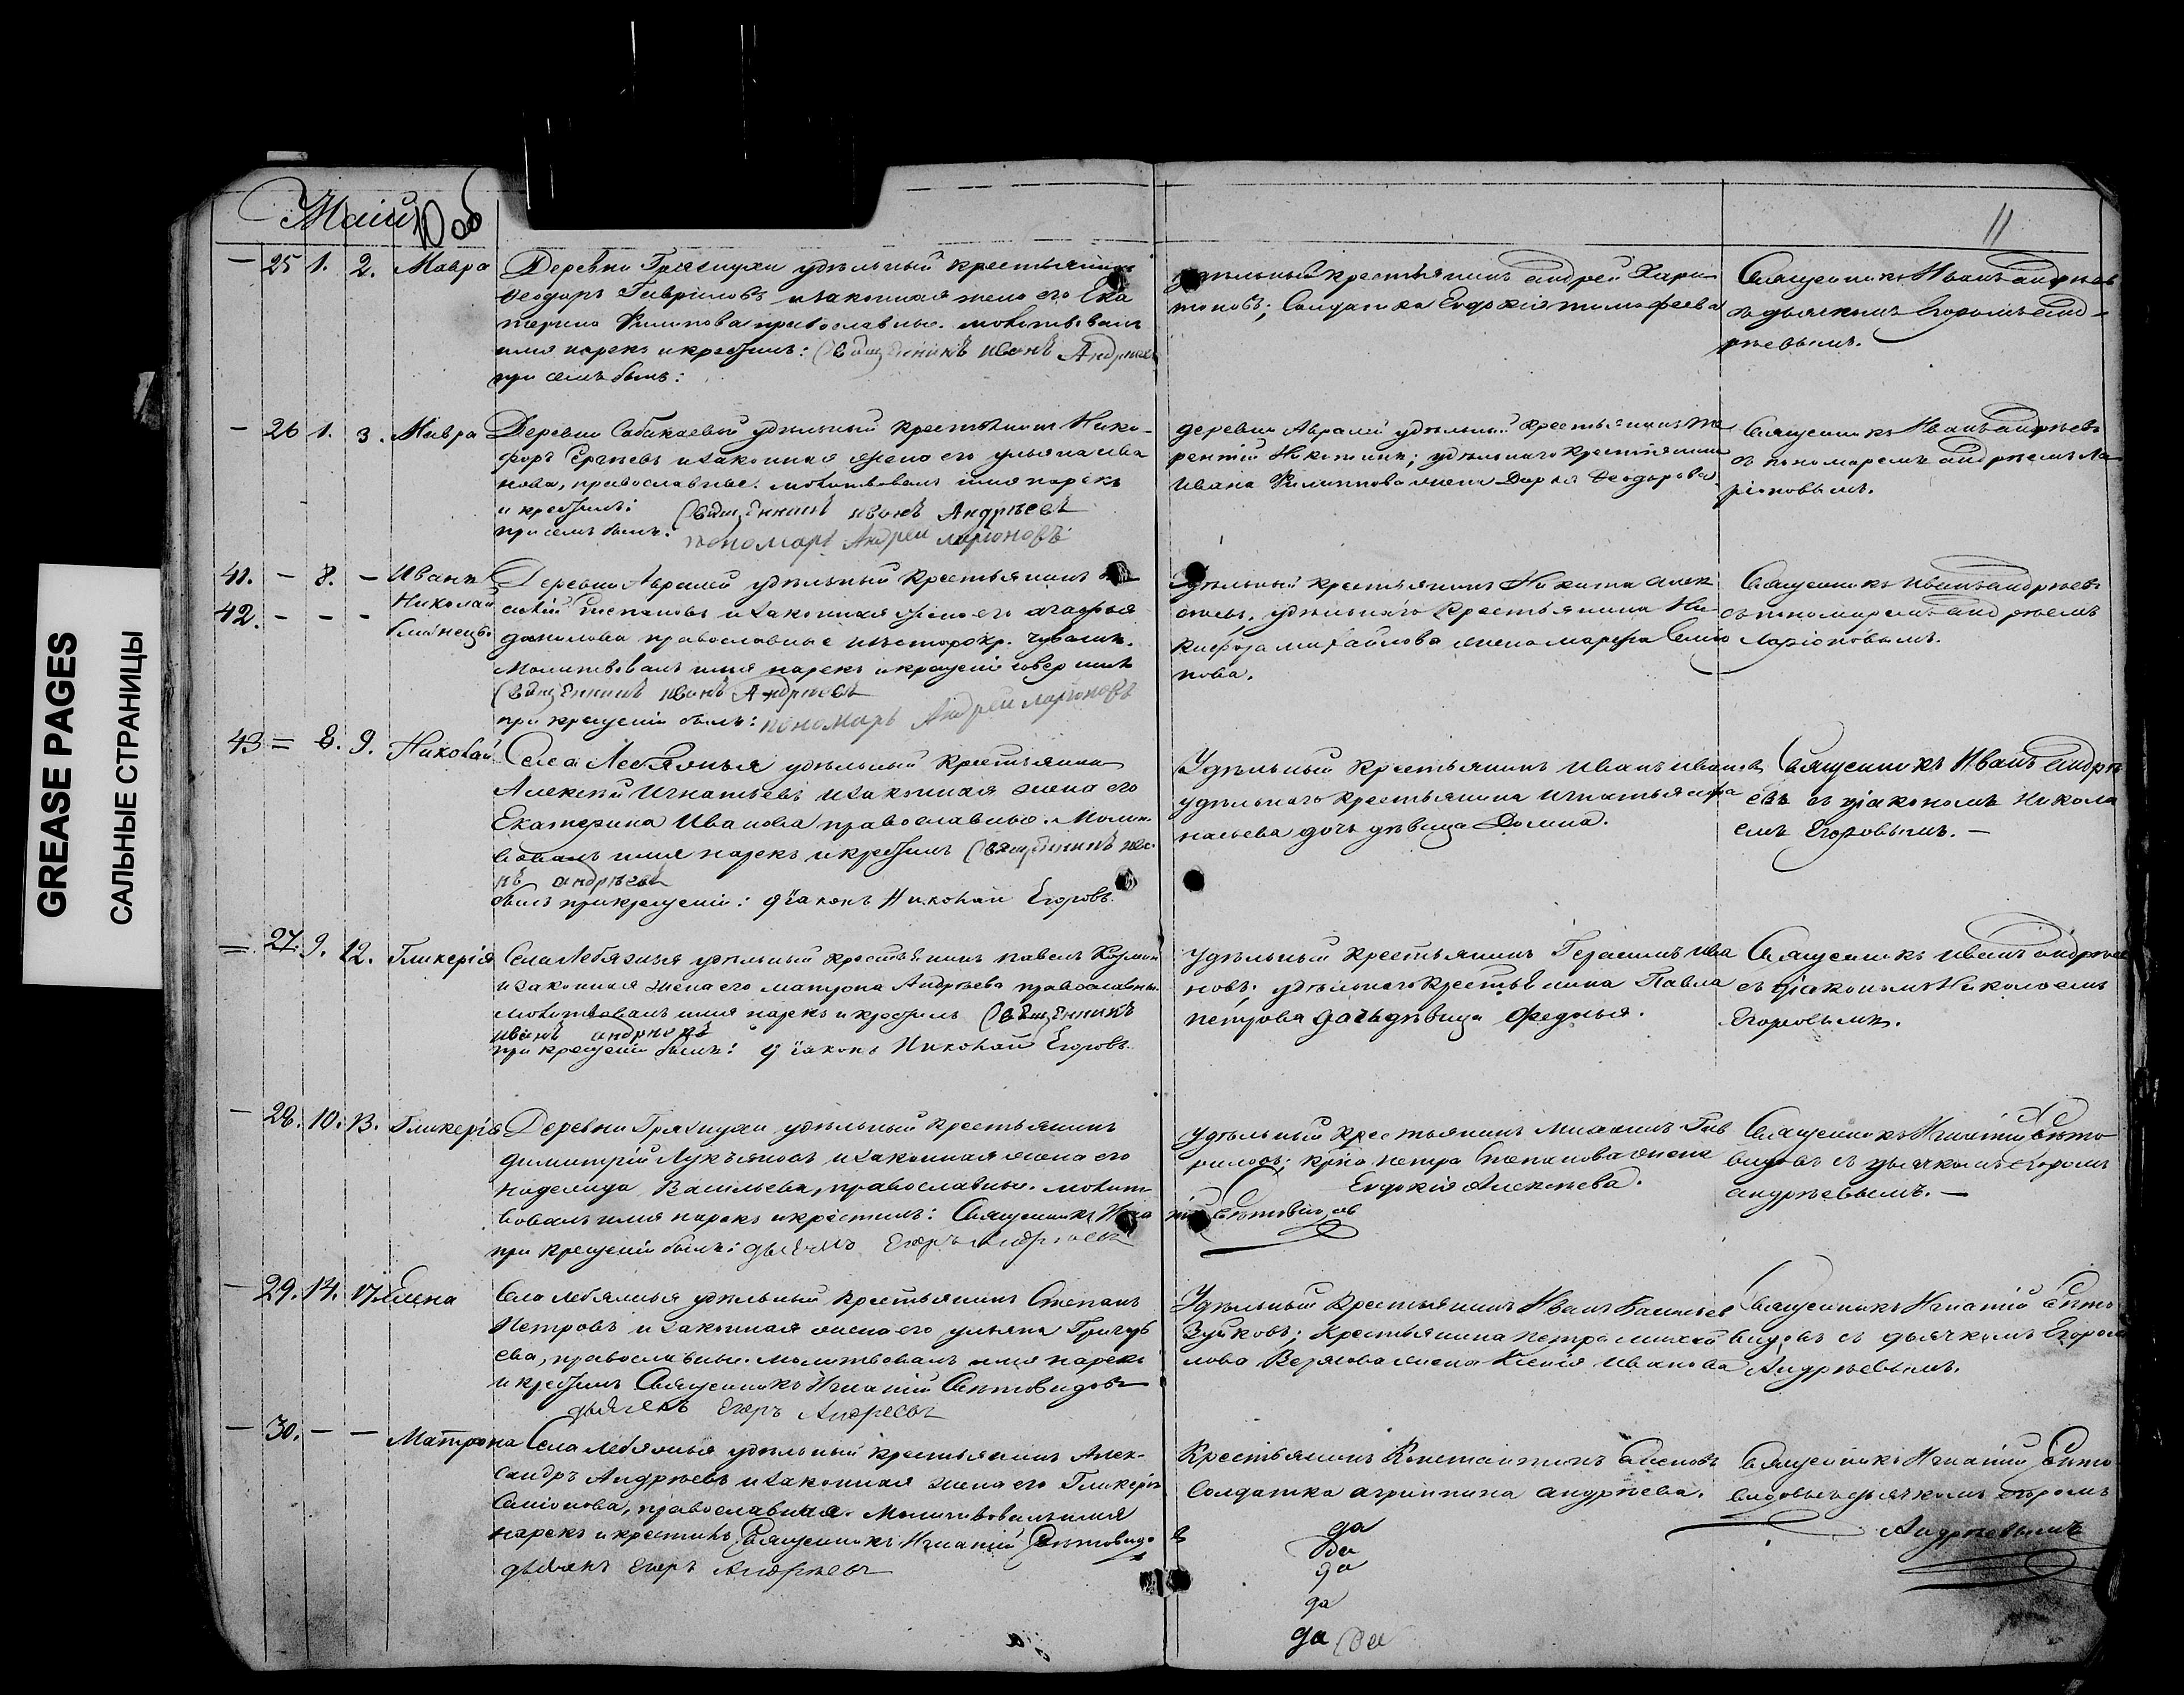 GREASE PAGES
САЛЬНЫЕ СТРАНИЦЫ
Маій
10 об
11
— 25 1. 2. Мавра
Деревни Грязнухи удѣльный крестьянинъ
Ѳеодоръ Гавриловъ и законная жена его Ека
терина Филипова православные. молитвовалъ
имя нарекъ и крестилъ: Священникъ иванъ Андреевъ
при семъ былъ:
удѣльный крестьянинъ андрей Хари
тоновъ; Солдатка Евдокія тимофеева
Священникъ Иванъ андреевъ
съ дьячкомъ Егоромъ Анд-
рѣевымъ.
— 26 1. 3. Мавра
Деревни Сабакаевой удѣльный крестьянинъ Ники-
форъ Сергѣевъ и законная жена его ульяна ива
нова, православные. молитвовалъ имя нарекъ
и крестилъ: Священникъ иванъ Андрѣевъ
при семъ былъ: пономарь Андреи ларионовъ
деревни Авралей удѣльный крестьянинъ Те
рентій Никитинъ; удѣльнаго крестьянина
Ивана Филиппова жена Дарья Ѳеодорова
Священникъ Иванъ андрѣевъ
съ пономаремъ андрѣемъ Ла
ріоновымъ.
41. — 8. — Иванъ
42. — — — Николай
близнецы
Деревни Авралей удѣльный крестьянинъ
Степановъ и законная жена его агафья
данилова православные изъ старокр. чувашъ.
Молитвовалъ имя нарекъ и крещеніе совершилъ
Священникъ иванъ Андрѣевъ
при крещеніи былъ: пономарь Андреи ларионовъ
удѣльный крестьянинъ Никита алек
сѣевъ, удѣльнаго крестьянина Ни
кифора михайлова жена марфа Семіо
нова.
Священникъ иванъ андрѣевъ
съ пономаремъ андрѣемъ
Ларіоновымъ.
43 = 8. 9. Николай
Села Лебяжья удѣльный крестьянинъ
Алексѣй Игнатьевъ и законная жена его
Екатерина Иванова православные. Молит
вовалъ имя нарекъ и крестилъ Священникъ ива
нъ андрѣевъ
былъ при крещеніи: діаконъ Николай Егоровъ.
Удѣльный крестьянинъ иванъ ивановъ
удѣльнаго крестьянина игнатья афа
насьева дочь дѣвица Домна.
Священникъ Иванъ Андрѣ
евъ съ діакономъ Никола
емъ Егоровымъ. —
= 27. 9. 12. Гликерія
Села Лебяжья удѣльный крестьянинъ павелъ Кузмин
и законная жена его матрона Андрѣева православны.
молитвовалъ имя нарекъ и крестилъ Священникъ
иванъ андрѣевъ
при крещеніи былъ: діаконъ Николай Егоровъ.
Удѣльный крестьянинъ Герасимъ ива
новъ; удѣльнаго крестьянина Павла
петрова дочь дѣвица Федосья.
Священникъ иванъ андрѣев
съ діакономъ Николаемъ
Егоровымъ.
— 28. 10. 13. Гликерія
Деревни Грязнухи удѣльный крестьянинъ
димитрій Лукьяновъ и законная жена его
надежда Васильева, православные. молит
вовалъ имя нарекъ и крестилъ: Священникъ Игна
тій Свѣтовидовъ
при крещеніи былъ: дьячекъ Егоръ Андрѣевъ
удѣльный крестьянинъ михаилъ Гав
риловъ; кр҃на петра степанова жена
Евдокія Алексѣева.
Священникъ Игнатій Свѣто
видовъ съ дьячкомъ егоромъ
андрѣевымъ. —
— 29. 14. 17. Елена
Села лебяжья удѣльный крестьянинъ Степанъ
Петровъ и законная жена его ульяна Григорь
ева, православные. молитвовалъ имя нарекъ
и крестилъ Священникъ Игнатій Свѣтовидовъ
дьячекъ Егоръ Андреевъ
Удѣльный крестьянинъ Иванъ Васильев
Зуйковъ; крестьянина петра михай
лова жена Ксенія иванова
Священникъ Игнатій Свѣто
видовъ съ дьячкомъ Егором
Андрѣевымъ.
— 30. — — Матрона
Села лебяжья удѣльный крестьянинъ Алек-
сандръ Андрѣевъ и законная жена его Гликерія
Семіонова, православная. Молитвовалъ имя
нарекъ и крестилъ Священникъ Игнатій Свѣтовидо
въ
дьячекъ Егоръ Андрѣевъ
Крестьянинъ Константинъ
Солдатка агрипина андрѣева.
Священникъ Игнатій Свѣто
видовъ съ дьячкомъ егоромъ
Андрѣевымъ
да
да
да
да
да да